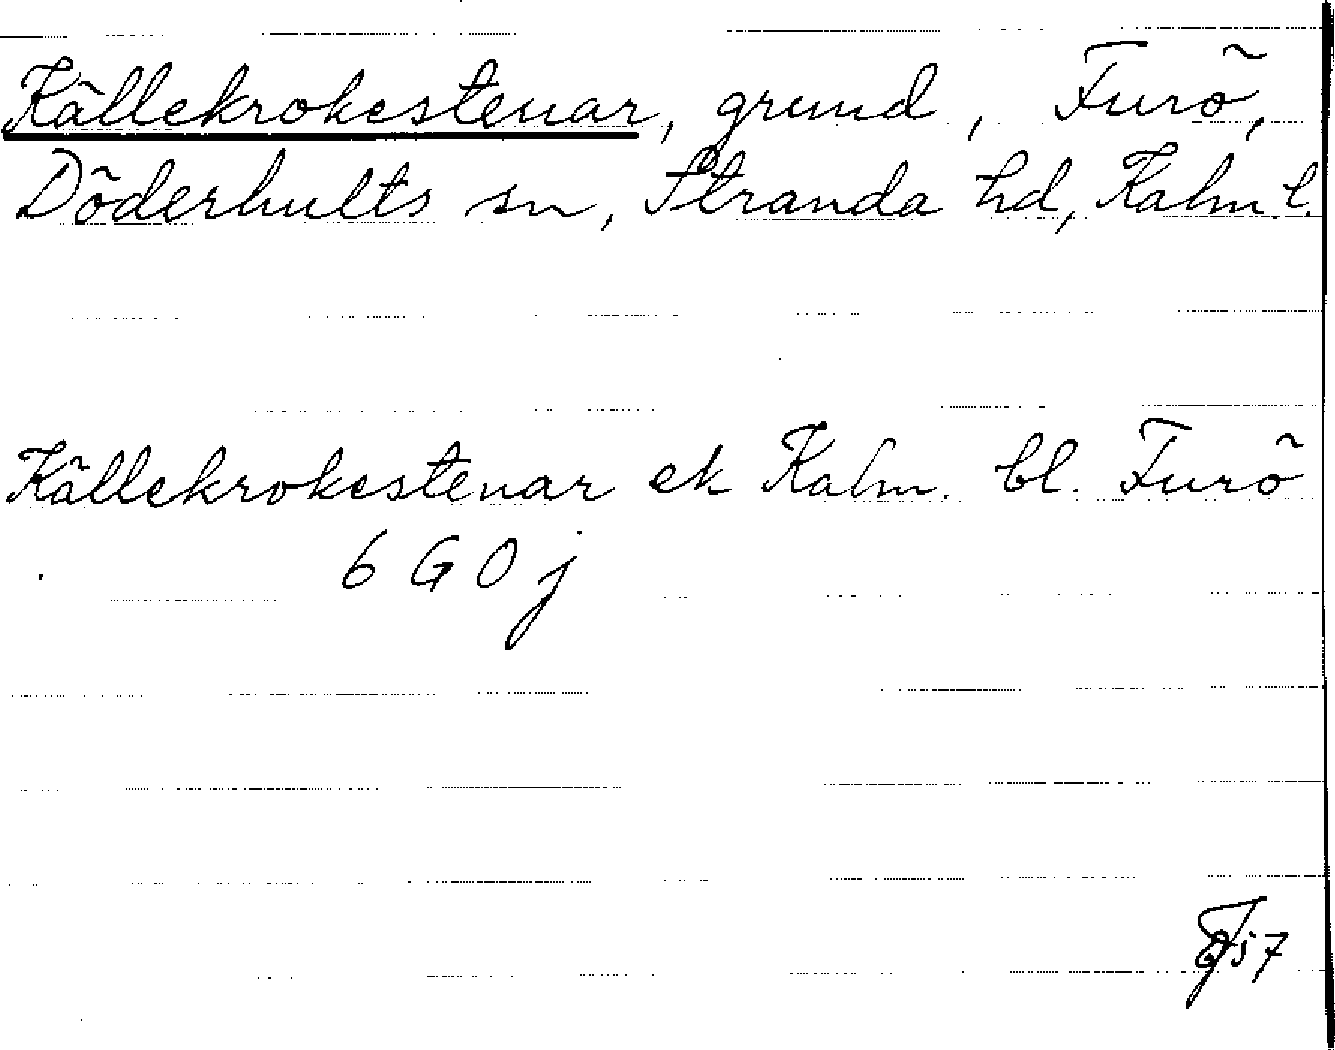 Källekrokestenar, grund, Furö,
Döderhults sn, Stranda hd, Kalm. l.
Källekrokestenar ek Kalm. bl. Furö
6 G 0 j